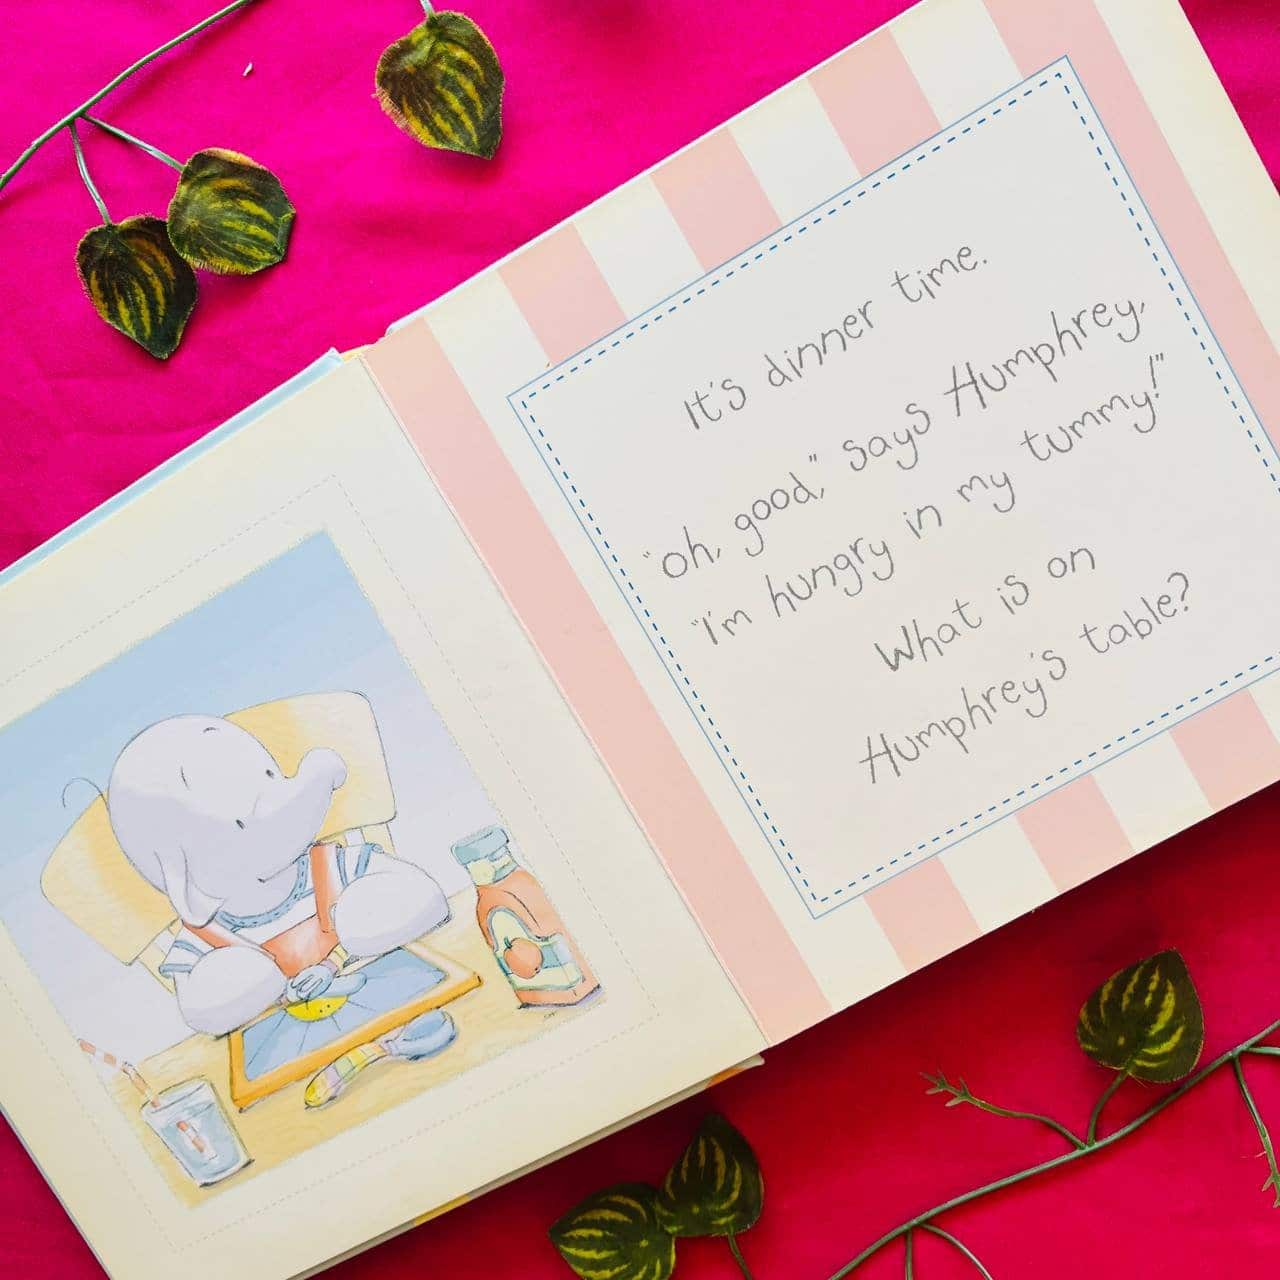 It's dinner time.
"Oh, good," says Humphrey,
"I'm hungry in my tummy!"
What is on
Humphrey's table?